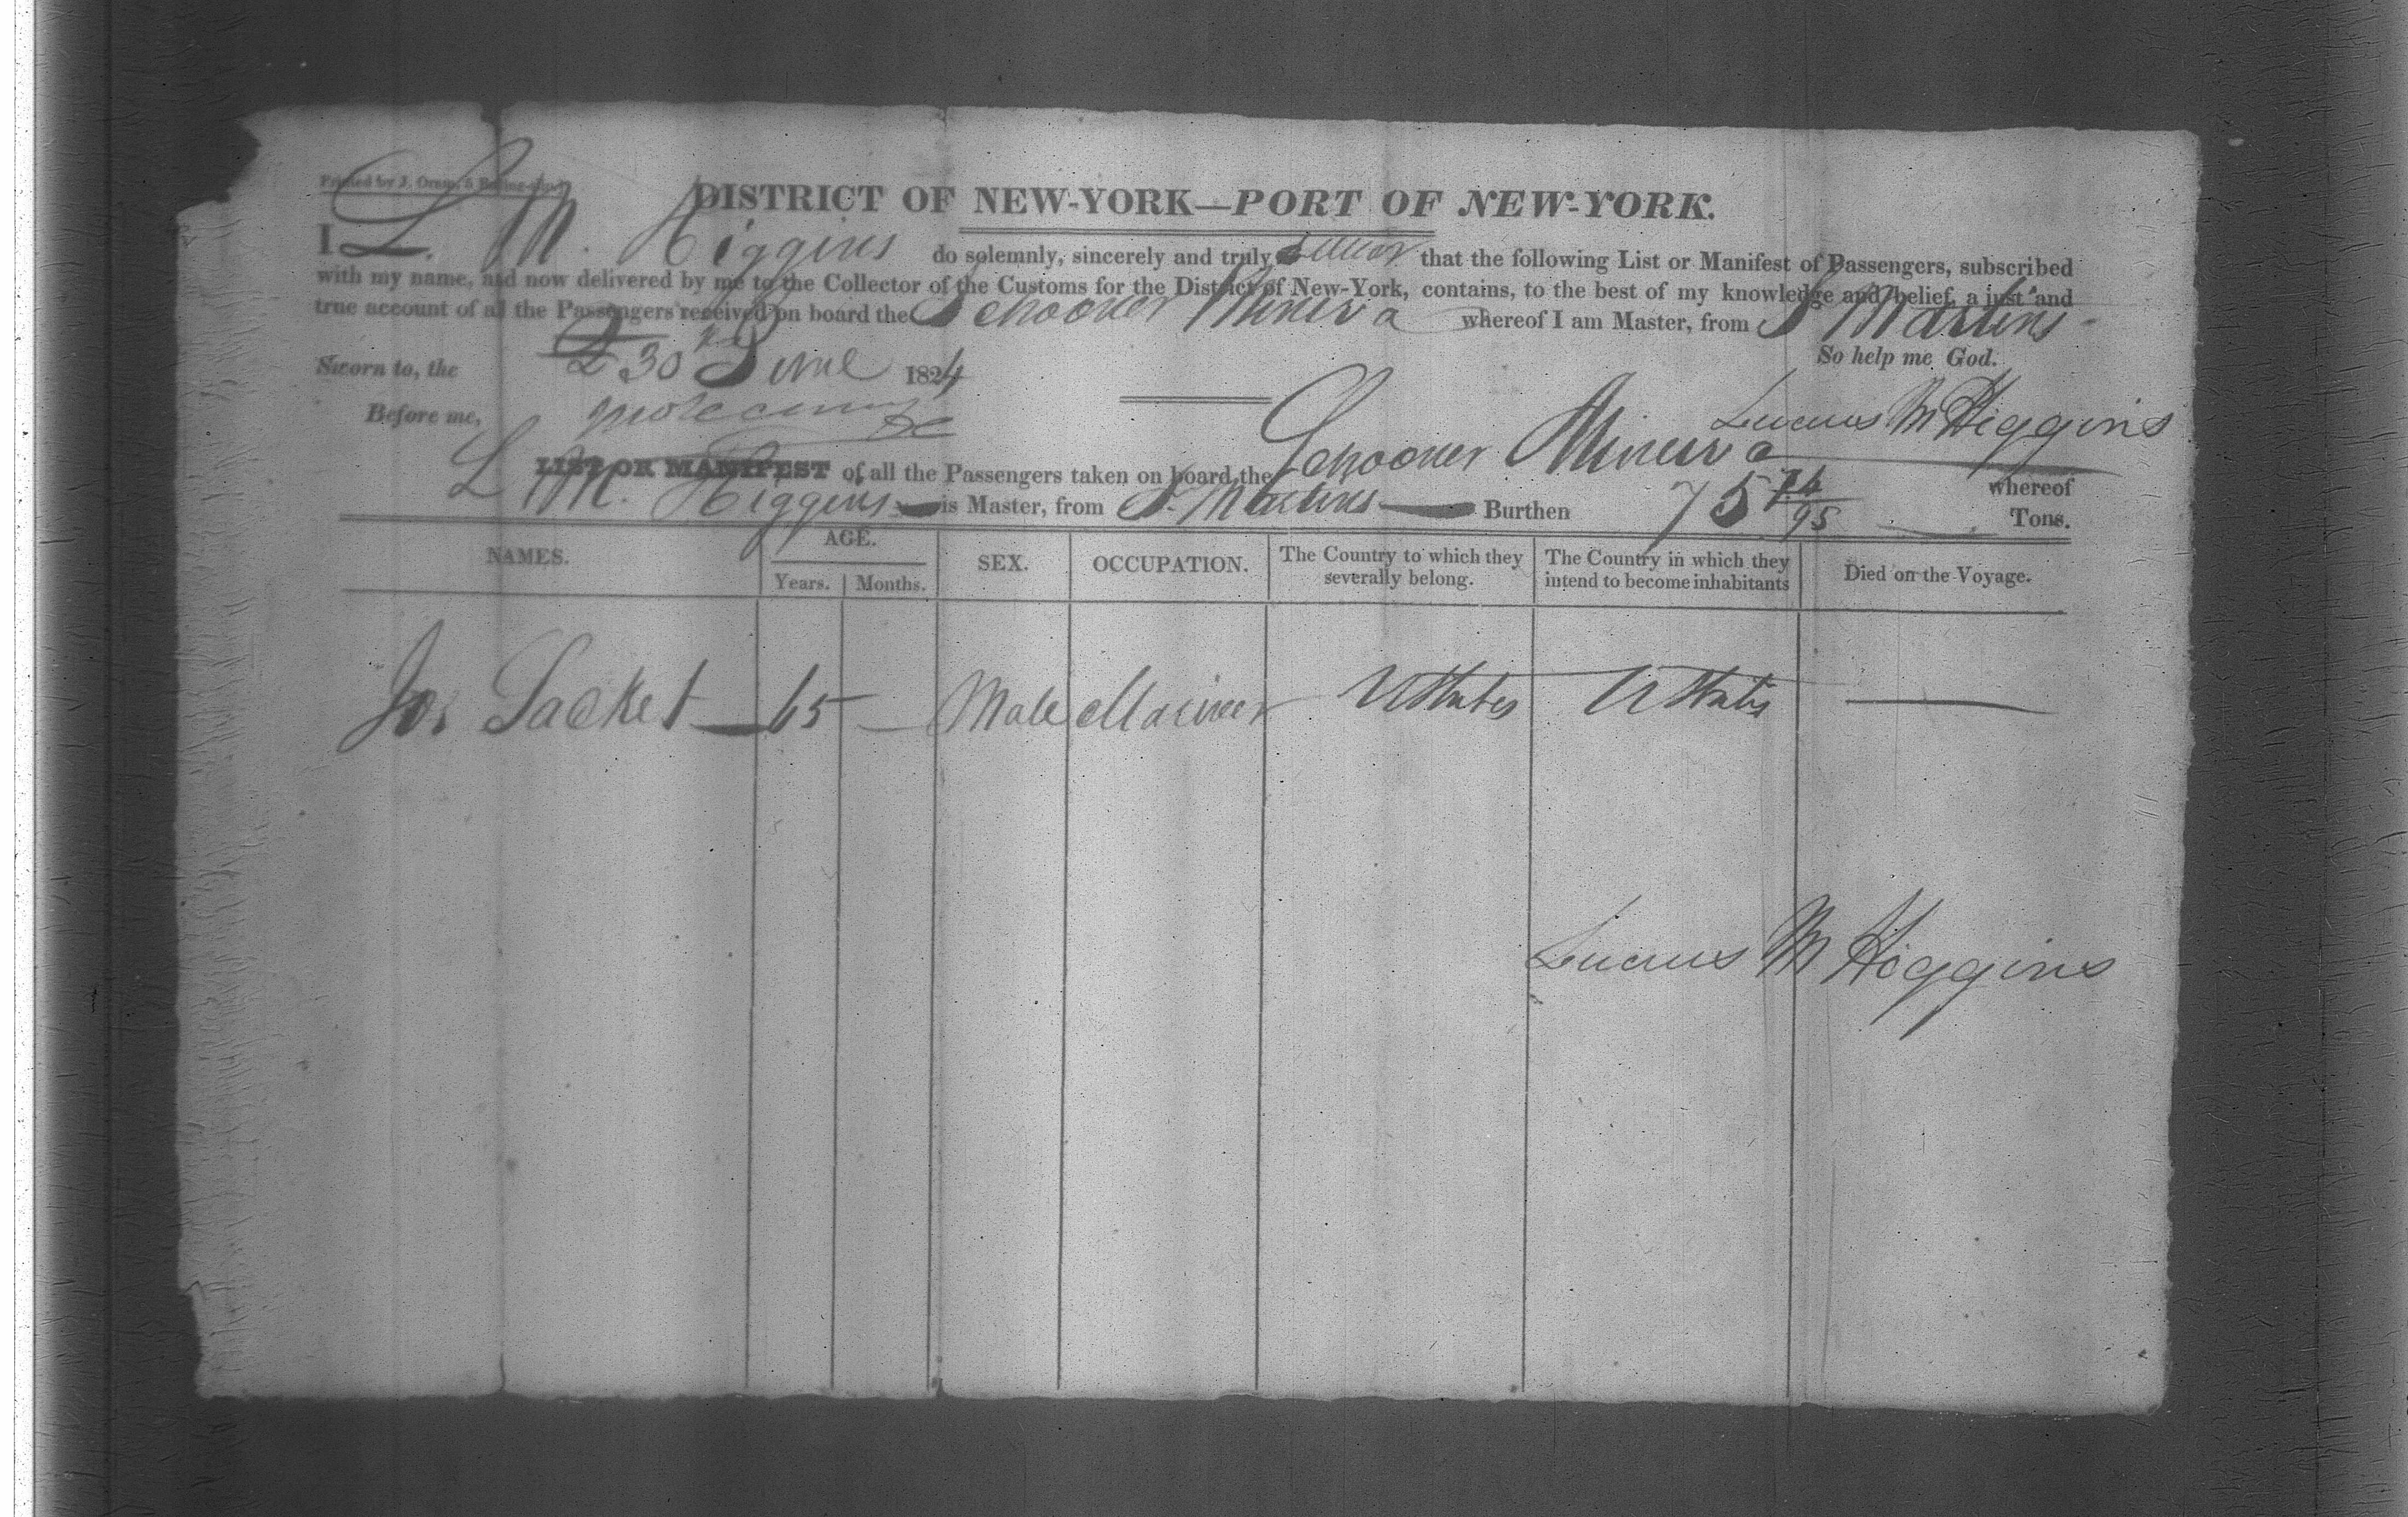 Printed by J. Oram, 5
DISTRICT OF NEW-YORK—PORT OF NEW-YORK.
I L. M. Higgins do solemnly, sincerely and truly swear that the following List or Manifest of Passengers, subscribed
with my name, and now delivered by me to the Collector of the Customs for the District of New-York, contains, to the best of my knowledge and belief, a just and
true account of all the Passengers received on board the Schooner Minerva whereof I am Master, from St Martins
So help me God.
Sworn to, the 30th June 1824
Before me,
Lucius M Higgins
LIST OR MANIFEST of all the Passengers taken on board the Schooner Minerva whereof
L M. Higgins is Master, from St. Martins Burthen 75 74/95 Tons.
NAMES. AGE. Years. Months. SEX. OCCUPATION. The Country to which they severally belong. The Country in which they intend to become inhabitants Died on the Voyage.
Jos Sacket — 65 — Male Mariner UStates UStates —
Lucius M Higgins